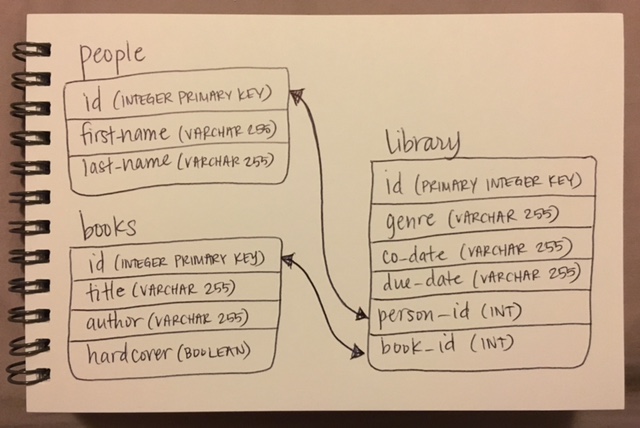 people
id (INTEGER PRIMARY KEY)
first-name (VARCHAR 255)
last-name (VARCHAR 255)
books
id (INTEGER PRIMARY KEY)
title (VARCHAR 255)
author (VARCHAR 255)
hardcover (BOOLEAN)
library
id (PRIMARY INTEGER KEY)
genre (VARCHAR 255)
co-date (VARCHAR 255)
due_date (VARCHAR 255)
person_id (INT)
book_id (INT)